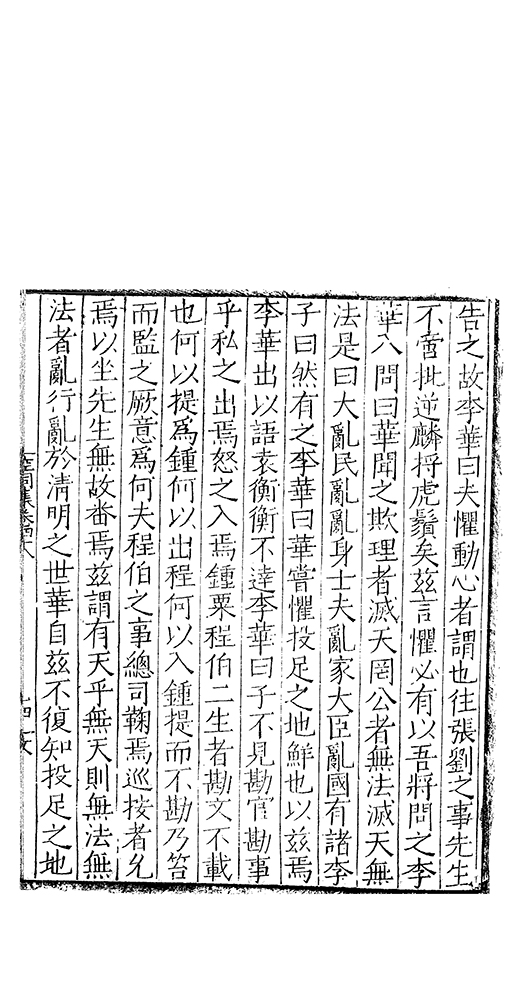 告之故李華曰夫懼動心者謂也往張劉之事先生
不啻批逆麟捋虎鬚矣茲言懼必有以吾將問之李
華入問曰華聞之欺理者滅天罔公者無法滅天無
法是曰大亂民亂亂身士夫亂家大臣亂國有諸李
子曰然有之李華曰華嘗懼投足之地鮮也以茲焉
李華出以語袁衡衡不達李華曰子不見勘官勘事
乎私之出焉怒之入焉鍾粟程伯二生者勘文不載
也何以提為鍾何以出程何以入鍾提而不勘乃笞
而監之厥意為何夫程伯之事總司鞠焉巡按者允
焉以坐先生無故畨焉茲謂有天乎無天則無法無
法者亂行亂於清明之世華自茲不復知投足之地
空同集卷四十八